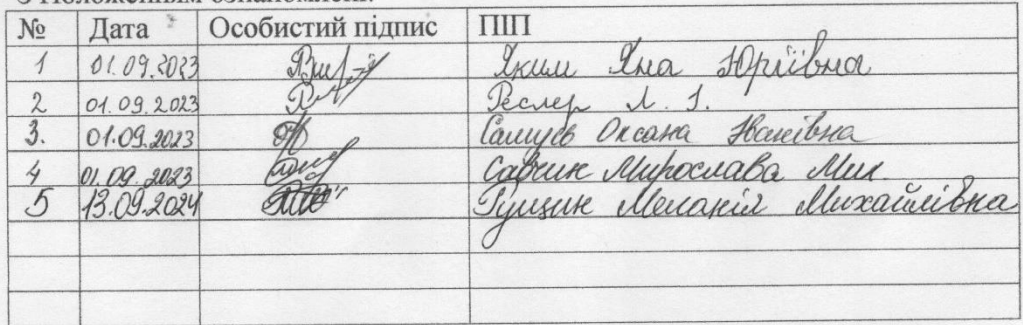 З Положенням ознайомлені:
№ Дата Особистий підпис ПІП
1 01.09.2023 Яким Яна Юріївна
2 01.09.2023 Реслер Л. І.
3. 01.09.2023 Самуєв Оксана Іванівна
4 01.09.2023 Савчин Мирослава Мик.
5 13.09.2024 Меланія Михайлівна